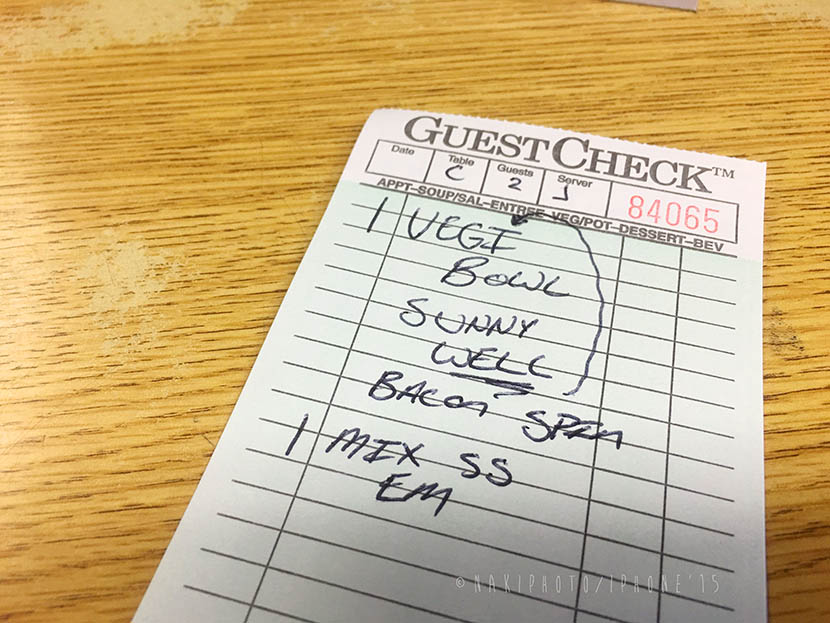 GUEST CHECK™
Date Table Guests Server
C 2 J 84065
APPT-SOUP/SAL-ENTREE-VEG/POT-DESSERT-BEV
1 VEGI
BOWL
SUNNY
WELL
BACON SPIN
1 MIX SS
EM
© NAKIPHOTO/IPHONE'15